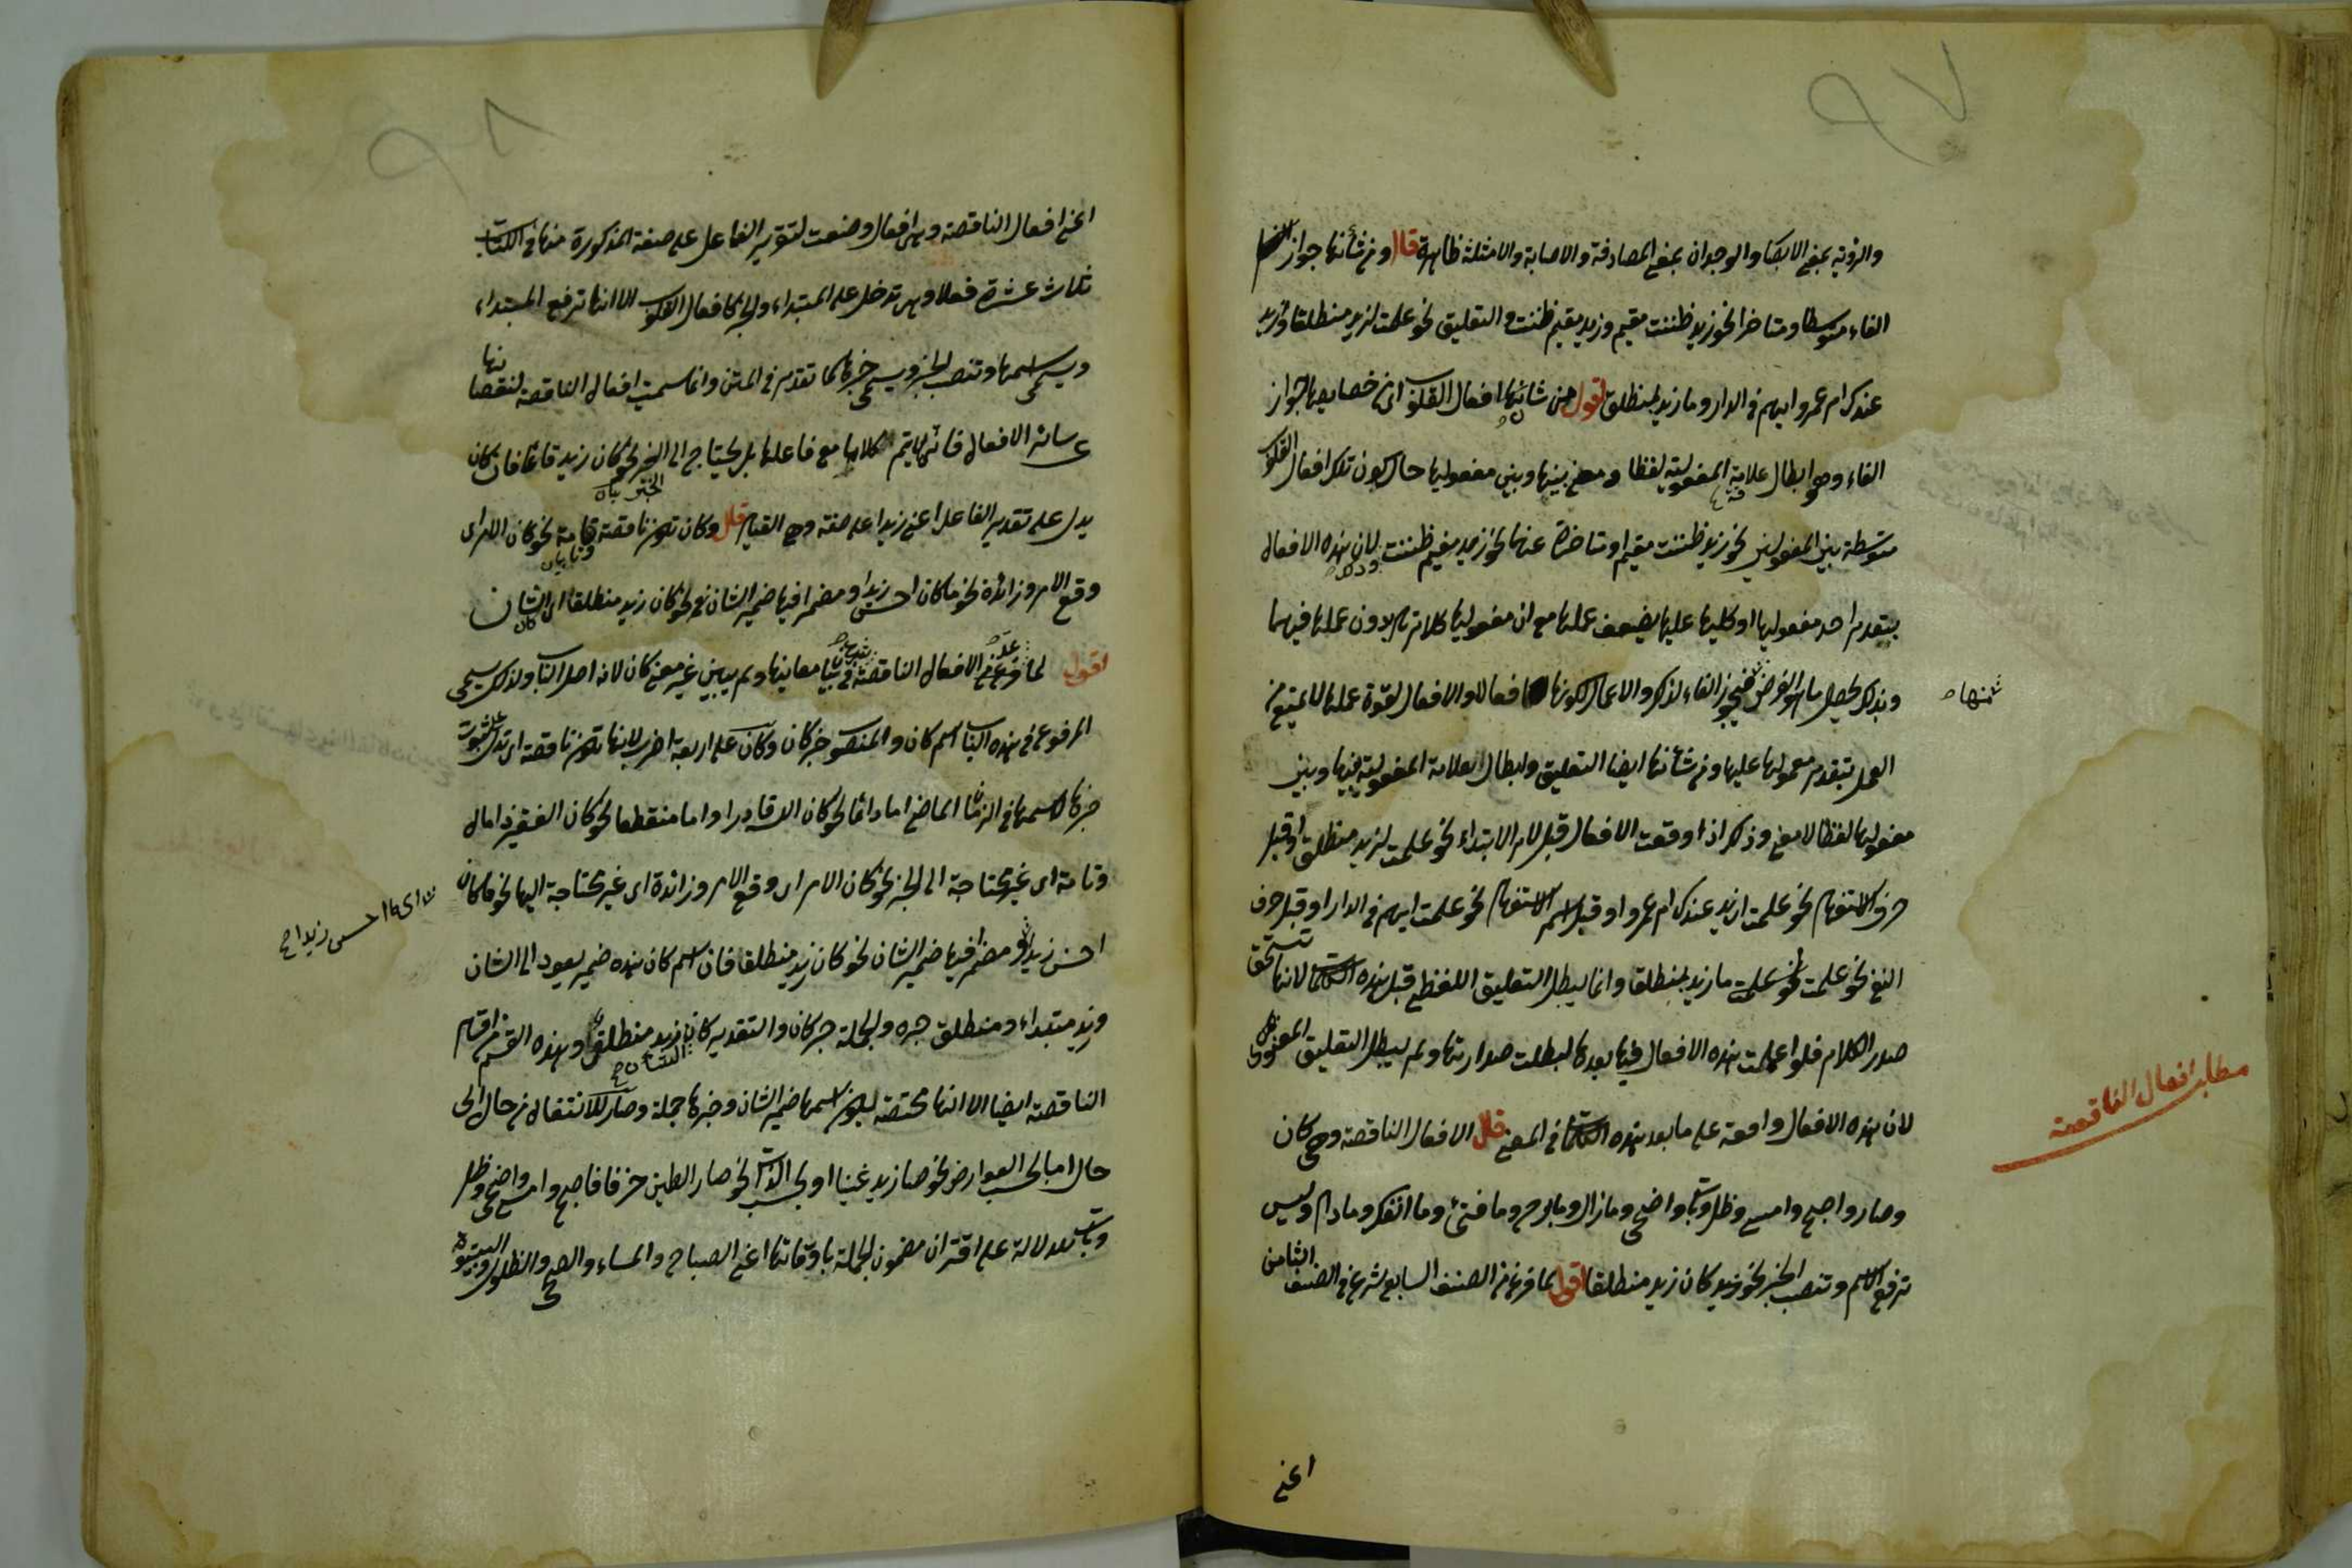 والرؤية بمعنى الابصار والوجدان بمعنى المصادفة والاصابة والامثلة ظاهرة قال ومن شأنها جواز
الغاء متوسطا ومتاخرا نحو زيد ظننت مقيم وزيد مقيم ظننت والتعليق نحو علمت لزيد منطلقا وازيد
عندك ام عمرو وايهم في الدار وما زيد بمنطلق اقول من شانها افعال القلوب اي من خصايصها جواز
الغاء وهو ابطال علامة المفعولية لفظا ومعنى بينها وبين مفعوليها حال كون تلك افعال القلوب
متوسطة بين المفعولين نحو زيد ظننت مقيم او متاخرة عنها نحو زيد مقيم ظننت وذلك لان هذه الافعال
بتقدم احد مفعوليها او كليها عليها يضعف عملها مع ان مفعوليها كلام تام بدون عملها فيهما
وبذلك يحصل ما هو الغرض منها فيجوز الغاء لذلك والاعمال لكونها افعالا والافعال لقوة عملها لا يمتنع من
العمل بتقدم معمولها عليها ومن شأنها ايضا التعليق وابطال العلامة المفعولية بينها وبين
مفعوليها لفظا لا معنى وذلك اذا وقعت الافعال قبل لام الابتداء نحو علمت لزيد منطلق او قبل
حرف الاستفهام نحو علمت ازيد عندك ام عمرو او قبل اسم الاستفهام نحو علمت ايهم في الدار او قبل حرف
النفي نحو علمت ما زيد بمنطلقا وانما يبطل التعليق اللفظي قبل هذه الكلمات لانها تستحق
صدر الكلام فلو اعملت هذه الافعال فيما بعدها لبطلت صدارتها ولم يبطل التعليق المعنوي
لان هذه الافعال واقعة على ما بعد هذه الكلمات في المعنى قال الافعال الناقصة وهي كان
وصار واصبح وامسى وظل وبات واضحى وما زال وما برح وما فتئ وما انفك وما دام وليس
ترفع الاسم وتنصب الخبر نحو كان زيد منطلقا اقول لما فرغ من الصنف السابع شرع في الصنف الثامن
اعني
مطلب افعال الناقصة
اعني افعال الناقصة وهي افعال وضعت لتقرير الفاعل على صفة المذكورة منها في الكتاب
ثلاث عشرة فعلا وهي تدخل على المبتداء والخبر كافعال القلوب الا انها ترفع المبتداء
ويسمى اسمها وتنصب الخبر ويسمى خبرها كما تقدم في المتن وانما سميت افعال الناقصة لنقصانها
عن سائر الافعال فانها لا يتم كلامها مع فاعلها بل يحتاج الى الخبر نحو كان زيد قائما فان كان
يدل على تقدير الفاعل اعني زيدا على صفة وهي القيام قال وكان تكون ناقصة وتامة نحو كان الامر اي
وقع الامر وزائدة نحو ما كان احسن زيدا ومضمرا فيها ضمير الشان نحو كان زيد منطلقا اي كان الشان
اقول لما فرغ عن الافعال الناقصة شرع في بيان معانيها ولم يبين غير معنى كان لانه اصل الباب ولذلك يسمى
المرفوع في هذه الباب اسم كان والمنصوب خبر كان وكان على اربعة اضرب لانها تكون ناقصة اي تدل على ثبوت
خبرها لاسمها في الزمان الماضي اما دائما نحو كان الله قادرا واما منقطعا نحو كان الفقير ذا مال
وتامة اي غير محتاجة الى الخبر نحو كان الامر اي وقع الامر وزائدة اي غير محتاجة اليها نحو ما كان
احسن زيدا اي ما احسن زيدا ومضمرا فيها ضمير الشان نحو كان زيد منطلقا فان اسم كان هذه ضمير يعود الى الشان
وزيد مبتداء ومنطلق خبره والجملة خبر كان والتقدير كان الشان زيد منطلق وهذه القسم من اقسام
الناقصة ايضا الا انها مختصة بكون اسمها ضمير الشان وخبرها جملة وصار للانتقال من حال الى
حال اما بحسب العوارض نحو صار زيد غنيا او بحسب الذات نحو صار الطين خزفا فاصبح وامسى واضحى وظل
وبات للدلالة على اقتران مضمون الجملة باوقاتها اعني الصباح والمساء والضحى والظلول والبيتوتة